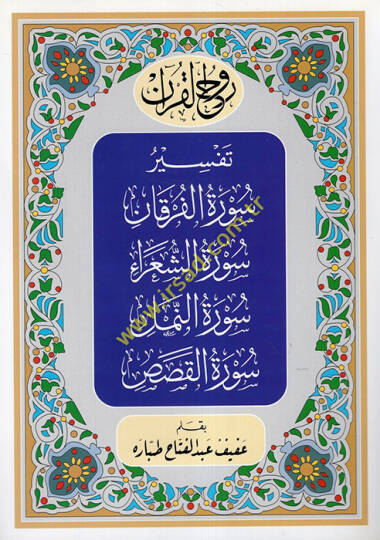 روح القرآن
تَفسِيرُ
سُورَةُ الفُرقَان
سُورَةُ الشُّعَرَاء
سُورَةُ النَّمل
سُورَةُ القَصَص
بقلم
عفيف عبد الفتاح طبّاره
www.irsad.com.tr